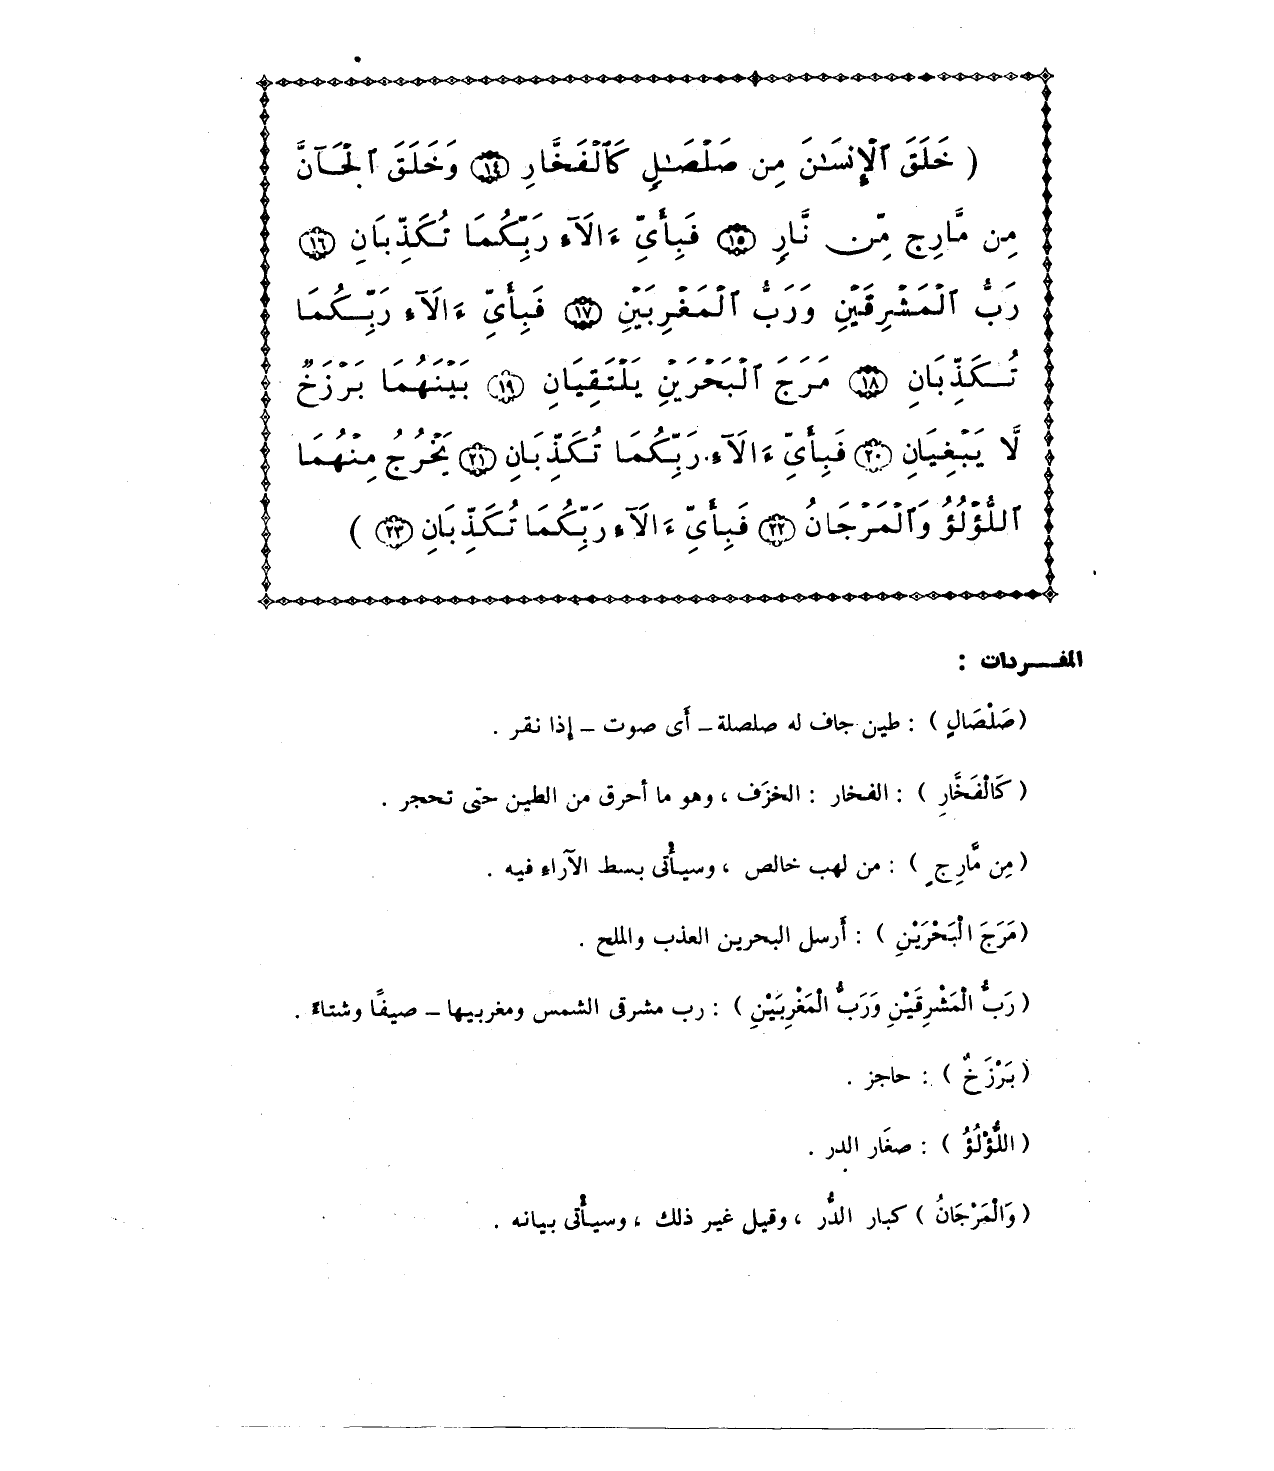 ( خَلَقَ ٱلْإِنسَـٰنَ مِن صَلْصَـٰلٍ كَٱلْفَخَّارِ ﴿١٤﴾ وَخَلَقَ ٱلْجَآنَّ
مِن مَّارِجٍ مِّن نَّارٍ ﴿١٥﴾ فَبِأَىِّ ءَالَآءِ رَبِّكُمَا تُكَذِّبَانِ ﴿١٦﴾
رَبُّ ٱلْمَشْرِقَيْنِ وَرَبُّ ٱلْمَغْرِبَيْنِ ﴿١٧﴾ فَبِأَىِّ ءَالَآءِ رَبِّكُمَا
تُكَذِّبَانِ ﴿١٨﴾ مَرَجَ ٱلْبَحْرَيْنِ يَلْتَقِيَانِ ﴿١٩﴾ بَيْنَهُمَا بَرْزَخٌ
لَّا يَبْغِيَانِ ﴿٢٠﴾ فَبِأَىِّ ءَالَآءِ رَبِّكُمَا تُكَذِّبَانِ ﴿٢١﴾ يَخْرُجُ مِنْهُمَا
ٱللُّؤْلُؤُ وَٱلْمَرْجَانُ ﴿٢٢﴾ فَبِأَىِّ ءَالَآءِ رَبِّكُمَا تُكَذِّبَانِ ﴿٢٣﴾ )
المفـــردات :
(صَلْصَالٍ ) : طين جاف له صلصلة ـ أى صوت ـ إذا نقر .
( كَالْفَخَّارِ ) : الفخار : الخزَف ، وهو ما أحرق من الطين حتى تحجر .
( مِن مَّارِجٍ ) : من لهب خالص ، وسيأتى بسط الآراء فيه .
(مَرَجَ الْبَحْرَيْنِ ) : أرسل البحرين العذب والملح .
( رَبُّ الْمَشْرِقَيْنِ وَرَبُّ الْمَغْرِبَيْنِ ) : رب مشرقى الشمس ومغربيها ـ صيفًا وشتاءً .
( بَرْزَخٌ ) : حاجز .
( اللُّؤْلُؤُ ) : صغَار الدر .
( وَالْمَرْجَانُ ) كبار الدُّر ، وقيل غير ذلك ، وسيأتى بيانه .